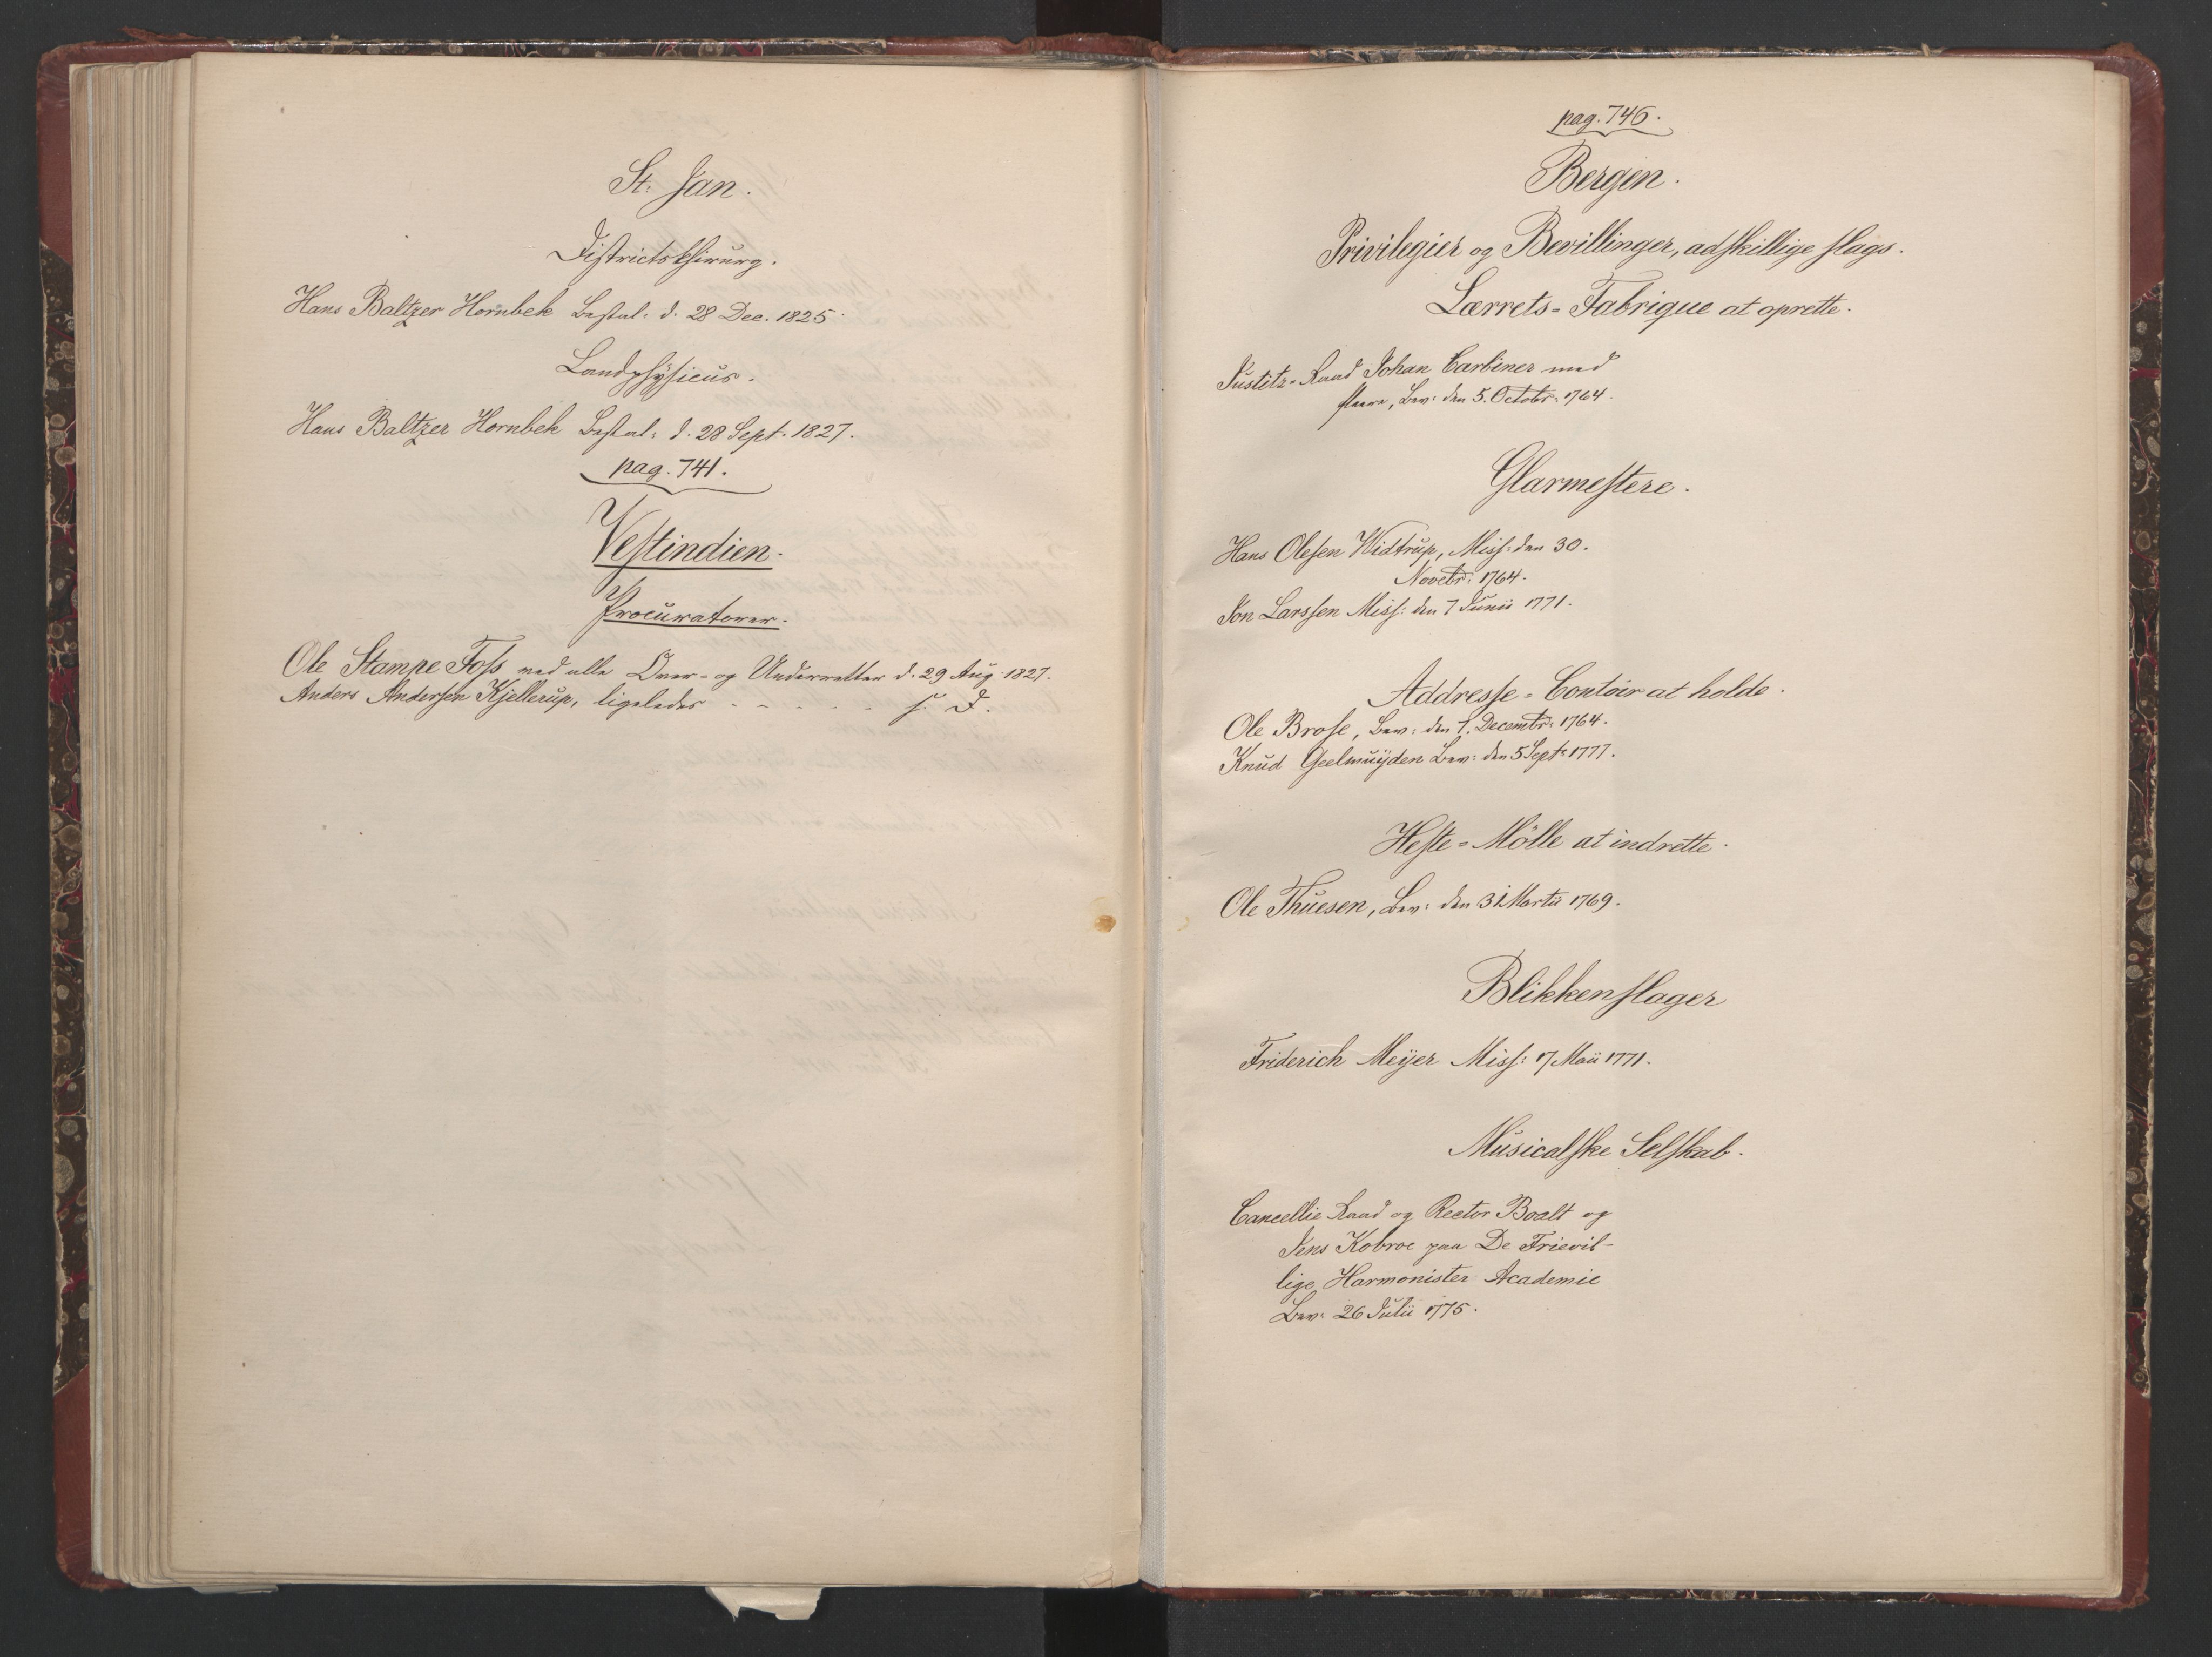 St. Jan.
Districtskhirurg.
Hans Baltzer Hornbek Bestal: d. 28 Dec. 1825.
Landphysicus.
Hans Baltzer Hornbek Bestal: d. 28 Sept. 1827.
pag. 741.
Vestindien.
Procuratorer.
Ole Stampe Foss ved alle Over- og Underretter d. 29 Aug. 1827.
Anders Andersen Kjellerup, ligeledes - - - - - s. D.
pag. 746.
Bergen.
Privilegier og Bevillinger, adskillige slags.
Lærrets-Fabrique at oprette.
Justitz-Raad Johan Carbiner med
fleere, Bev: den 5. Octobr: 1764.
Glarmestere.
Hans Olesen Widtrup, Miss: den 30.
Novebr: 1764.
Jon Larssen Miss: den 7 Junii 1771.
Addresse-Contoir at holde.
Ole Brose, Bev: den 7. Decembr: 1764.
Knud Geelmuÿden Bev: den 5 Sept: 1777.
Heste-Mölle at indrette.
Ole Thuesen, Bev: den 31 Martii 1769.
Blikkenslager
Friderich Meÿer Miss: 17 Maii 1771.
Musicalske Selskab.
Cancellie Raad og Rector Boalt og
Jens Kobroe paa De Frievil-
lige Harmonister Academie
Bev: 26 Julii 1775.